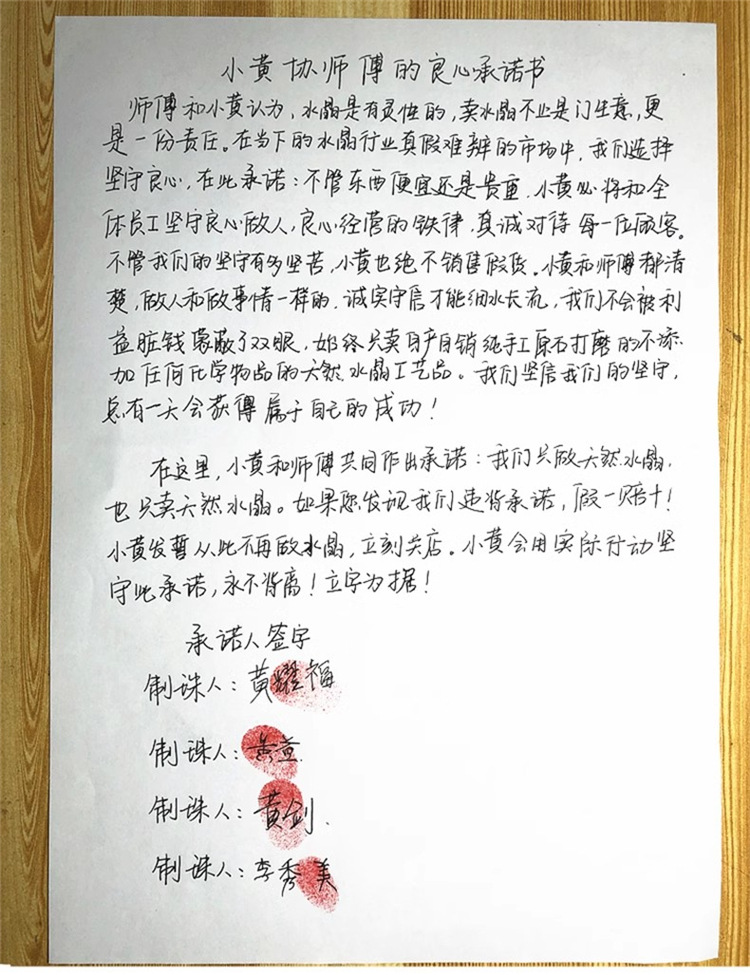 小黄协师傅的良心承诺书
师傅和小黄认为，水晶是有灵性的，卖水晶不止是门生意，更
是一份责任。在当下的水晶行业真假难辨的市场中，我们选择
坚守良心，在此承诺：不管东西便宜还是贵重，小黄必将和全
体员工坚守良心做人，良心经营的铁律，真诚对待每一位顾客。
不管我们的坚守有多坚苦，小黄也绝不销售假货。小黄和师傅都清
楚，做人和做事情一样的，诚实守信才能细水长流，我们不会被利
益脏钱蒙蔽了双眼，始终只卖自产自销纯手工原石打磨的不添
加任何化学物品的天然水晶工艺品。我们坚信我们的坚守，
总有一天会获得属于自己的成功！
在这里，小黄和师傅共同作出承诺：我们只做天然水晶，
也只卖天然水晶。如果您发现我们违背承诺，假一赔十！
小黄发誓从此不再做水晶，立刻关店。小黄会用实际行动坚
守此承诺，永不背离！立字为据！
承诺人签字
制珠人：黄耀福
制珠人：黄
制珠人：黄剑.
制珠人：李秀美